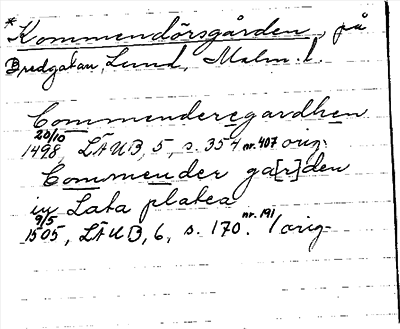 *Kommendörsgården, på
Bredgatan, Lund, Malm. l.
Commenderegardhen
20/10
1498, LÄUB, 5, s. 354 nr. 407 orig.
Commender ga[r]den
in Lata platea
9/5
1505, LÄUB, 6, s. 170. nr. 191 / orig.